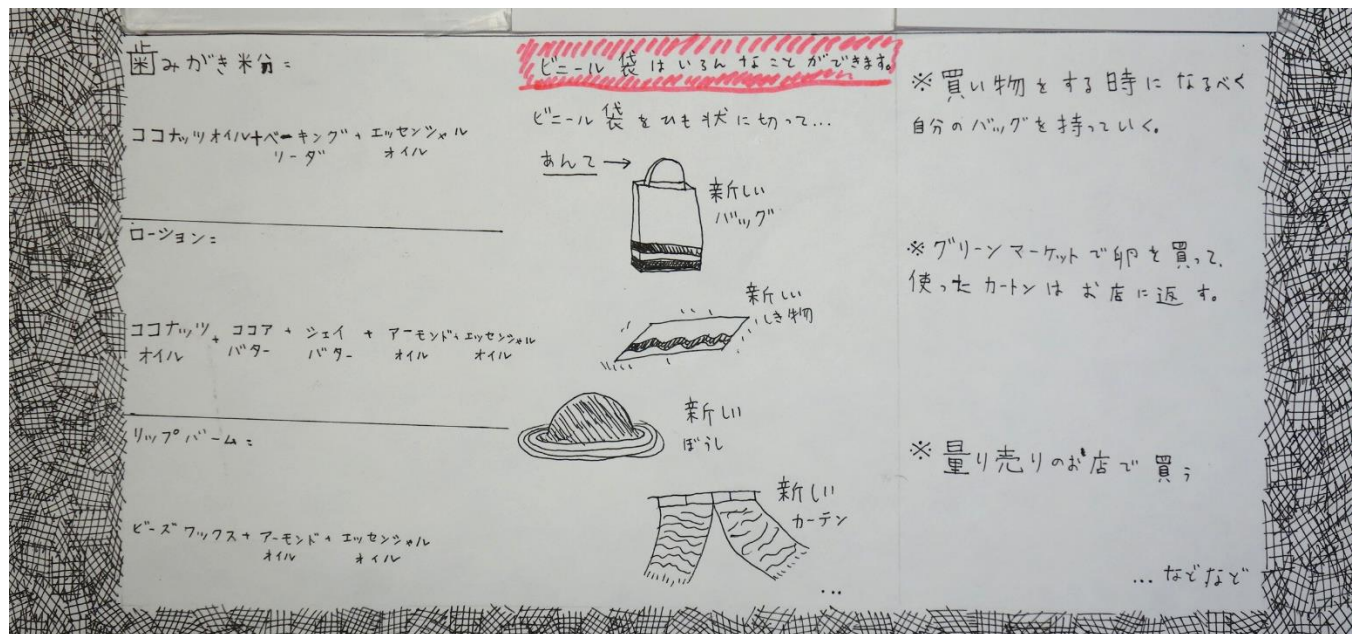 歯みがき粉=
ココナッツオイル+ベーキング+エッセンシャル
リーダ オイル
ローション=
ココナッツ+ココア+シェイ+アーモンド+エッセンシャル
オイル バター バター オイル オイル
リップバーム=
ビーズワックス+アーモンド+エッセンシャル
オイル オイル
ビニール袋はいろんなことができます。
ビニール袋をひも状に切って...
あんで→
新しい
バッグ
新しい
しき物
新しい
ぼうし
新しい
カーテン
...
※買い物をする時になるべく
自分のバッグを持っていく。
※グリーンマーケットで卵を買って、
使ったカートンはお店に返す。
※量り売りのお店で買う
...などなど